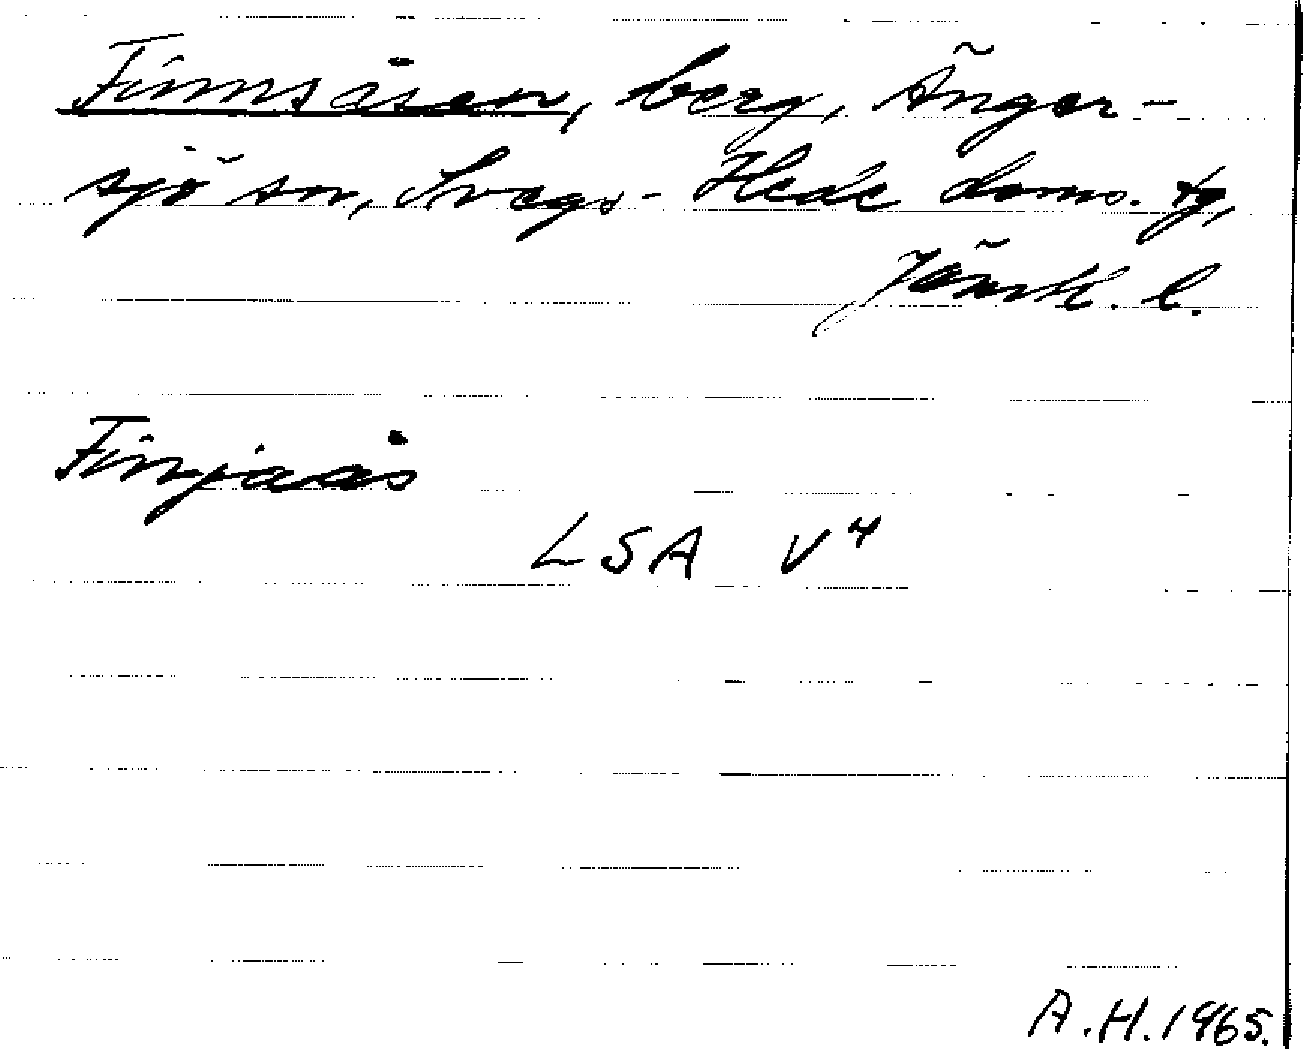 Finnsåsen, berg, Änger-
sjö sn, Svegs-Hede doms. tg,
Jämtl. l.
Finjaås
LSA V4
A.H. 1965.